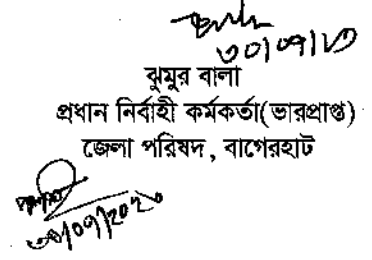 ৩০/০৭/২৩
ঝুমুর বালা
প্রধান নির্বাহী কর্মকর্তা(ভারপ্রাপ্ত)
জেলা পরিষদ, বাগেরহাট